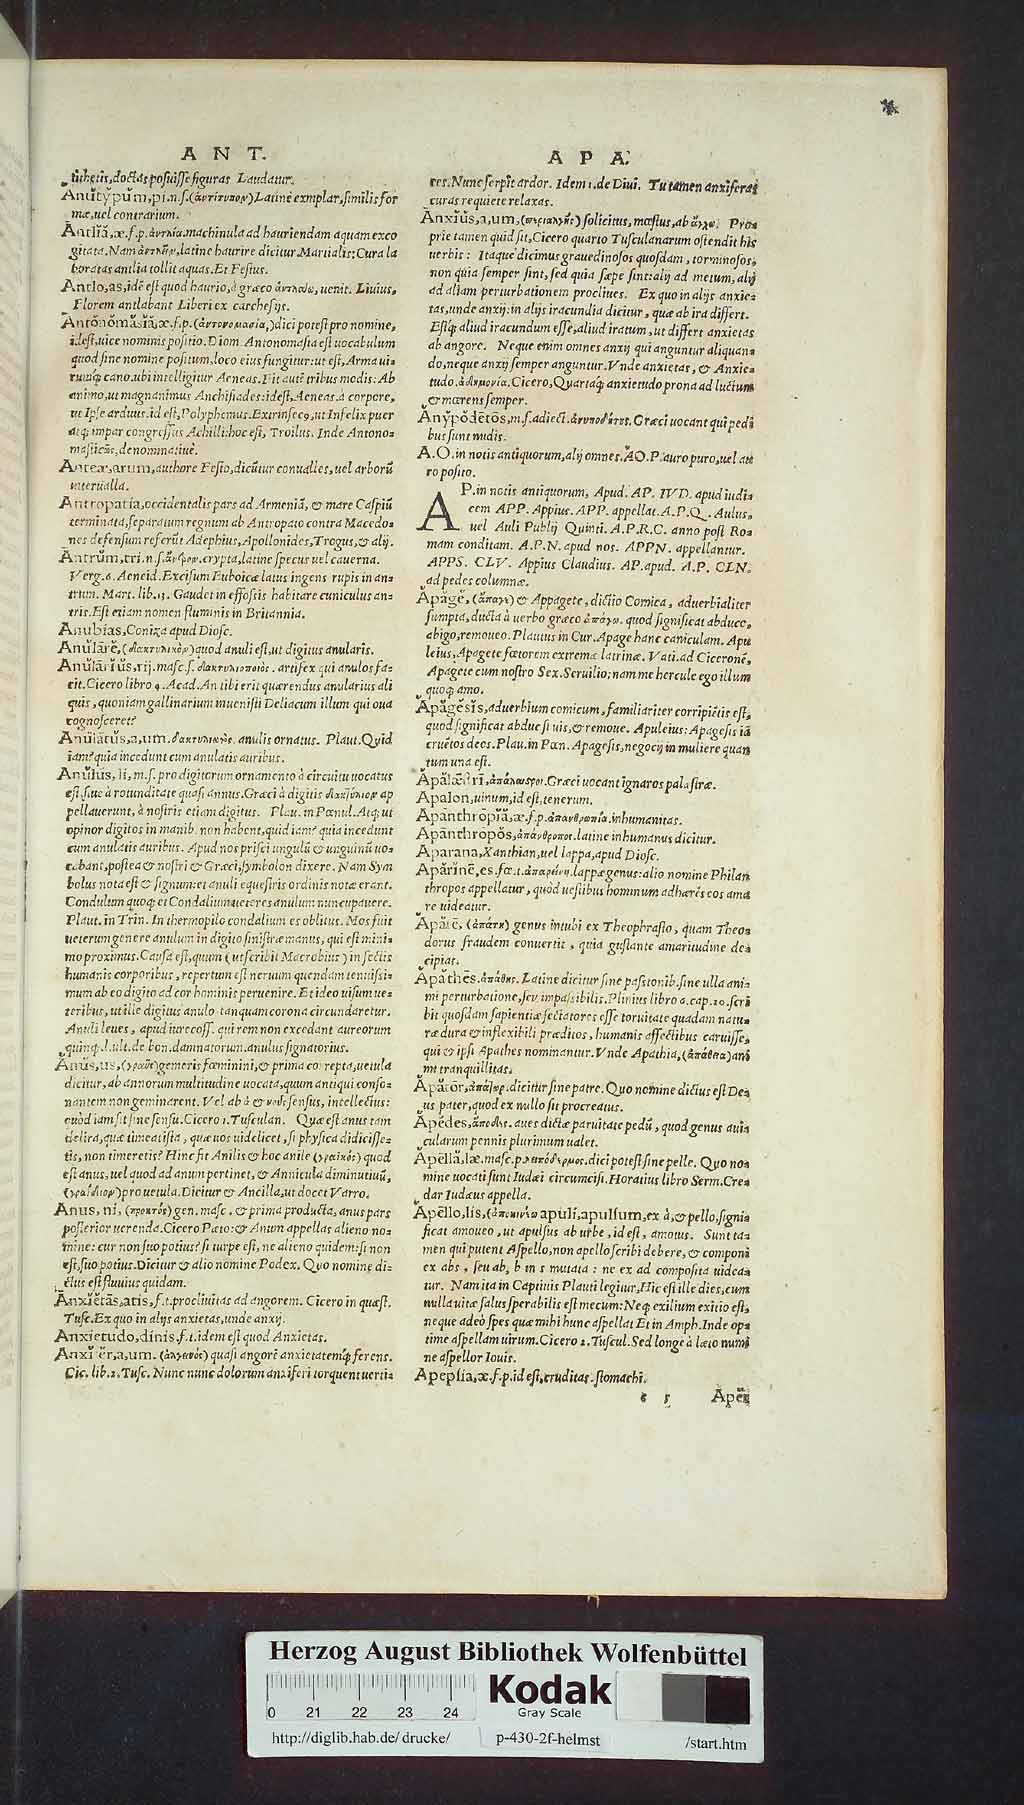 A N T.
tithetis, doctas posuisse figuras Laudatur.
Antitypum, pi. n. s. (ἀντίτυπον) Latine exemplar, similis for
mæ, uel contrarium.
Antliă, æ. f. p. ἀντλία. machinula ad hauriendam aquam exco
gitata. Nam ἀντλεῖν, latine haurire dicitur. Martialis: Cura la
boratas antlia tollit aquas. Et Festus.
Antlo, as, idē est quod haurio, à græco ἀντλάω, uenit. Liuius,
Florem antlabant Liberi ex carchesijs.
Antonomăsiă, æ. f. p. (ἀντονομασία,) dici potest pro nomine,
i. dest, uice nominis positio. Diom. Antonomasia est uocabulum
quod sine nomine positum, loco eius fungitur: ut est, Arma ui-
rumq; cano. ubi intelligitur Aeneas. Fit autē tribus modis: Ab
animo, ut magnanimus Anchisiades: idest, Aeneas. à corpore,
ut Ipse arduus. id est, Polyphemus. Extrinsecꝰ, ut Infelix puer
atq; impar congressus Achilli: hoc est, Troilus. Inde Antono-
masticus, denominatiuē.
Anteæ, arum, authore Festo, dicūtur conualles, uel arborū
interualla.
Antropatia, occidentalis pars ad Armeniā, & mare Caspiū
terminata, separatum regnum ab Antropato contra Macedo-
nes defensum referūt Adephius, Apollonides, Trogus, & alij.
Antrum, tri. n. s. ἄντρον. crypta, latine specus uel cauerna.
Verg. 6. Aeneid. Excisum Euboicæ latus ingens rupis in an-
trum. Mart. lib. 13. Gaudet in effossis habitare cuniculus an-
tris. Est etiam nomen fluminis in Britannia.
Anubias, Coniza apud Diosc.
Anulare, (δακτυλικὸν) quod anuli est, ut digitus anularis.
Anulărĭus, rij. masc. s. δακτυλιοποιὸς. artifex qui anulos fa-
cit. Cicero libro 4. Acad. An tibi erit quærendus anularius ali
quis, quoniam gallinarium inuenisti Deliacum illum qui oua
cognosceret?
Anulatus, a, um. δακτυλικὸς. anulis ornatus. Plaut. Quid
iam? quia incedunt cum anulatis auribus.
Anulus, li, m. s. pro digitorum ornamento à circuitu uocatus
est, siue à rotunditate quasi annus. Græci à digitis δακτύλιον ap
pellauerunt, à nostris etiam digitus. Plau. in Pœnul. Atq; ut
opinor digitos in manib. non habent, quid iam? quia incedunt
cum anulatis auribus. Apud nos prisci ungulū & unguinū uo-
cabant, postea & nostri & Græci, symbolon dixere. Nam Sym
bolus nota est & signum: et anuli equestris ordinis notæ erant.
Condulum quoq; et Condalium ueteres anulum nuncupauere.
Plaut. in Trin. In thermipolio condalium es oblitus. Mos fuit
ueterum genere anulum in digito sinistræ manus, qui est mini-
mo proximus. Causa est, quum (ut scribit Macrobius) in sectis
humanis corporibus, repertum est neruum quendam tenuissi-
mum ab eo digito ad cor hominis peruenire. Et ideo uisum ue-
teribus, ut ille digitus anulo tanquam corona circundaretur.
Anuli leues, apud iureconss. qui rem non excedant aureorum
quinq;. l. ult. de bon. damnatorum. anulus signatorius.
Anŭs, us, (γραῦς) generis fœminini, & prima correpta, uetula
dicitur, ab annorum multitudine uocata, quum antiqui conso-
nantem non geminarent. Vel ab à & νοῦς sensus, intellectus:
quòd iam sit sine sensu. Cicero 1. Tusculan. Quæ est anus tam
delira, quæ timeat ista, quæ uos uidelicet, si physica didicisse-
tis, non timeretis? Hinc fit Anilis & hoc anile (γραϊκὸς) quod
est anus, uel quod ad anum pertinet, & Annicula diminutiuū,
(γραΐδιον) pro uetula. Dicitur & Ancilla, ut docet Varro.
Anus, ni, (πρωκτὸς) gen. masc. & prima producta, anus pars
posterior uerenda. Cicero Pæto: & Anum appellas alieno no-
mine: cur non suo potius? si turpe est, ne alieno quidem: si non
est, suo potius. Dicitur & alio nomine Podex. Quo nomine di-
ctus est fluuius quidam.
Anxietas, atis, f. t. procliuitas ad angorem. Cicero in quæst.
Tusc. Ex quo in alijs anxietas, unde anxij.
Anxietudo, dinis. f. t. idem est quod Anxietas.
Anxifer, a, um. (ἀλγεινὸς) quasi angorē anxietatemq; ferens.
Cic. lib. 2. Tusc. Nunc nunc dolorum anxiferi torquent uerti-
A P A.
ces. Nunc serpit ardor. Idem 1. de Diui. Tu tamen anxiferas
curas requiete relaxas.
Anxius, a, um, (περιαλγὴς) solicitus, mœstus, ab ἄγχω. Pro-
prie tamen quid sit, Cicero quarto Tusculanarum ostendit his
uerbis: Itaque dicimus grauedinosos quosdam, torminosos,
non quia semper sint, sed quia sæpe sint: alij ad metum, alij
ad aliam perturbationem procliues. Ex quo in alijs anxie-
tas, unde anxij: in alijs iracundia dicitur, quæ ab ira differt.
Estq; aliud iracundum esse, aliud iratum, ut differt anxietas
ab angore. Neque enim omnes anxij qui anguntur aliquan-
do, neque anxij semper anguntur. Vnde anxietas, & Anxie-
tudo, ἀδημονία. Cicero, Quartaq; anxietudo prona ad luctum
& mœrens semper.
Anypodetos, m. s. adiect. ἀνυπόδητος. Græci uocant qui pedi
bus sunt nudis.
A. O. in notis antiquorum, alij omnes. AO. P. auro puro, uel au
ro posito.
AP. in notis antiquorum, Apud. AP. IVD. apud iudi-
cem APP. Appius. APP. appellat. A. P. Q. Aulus,
uel Auli Publij Quinti. A. P. R. C. anno post Ro-
mam conditam. A. P. N. apud nos. APPN. appellantur.
APPS. CLV. Appius Claudius. AP. apud. A. P. CLN.
ad pedes columnæ.
Apăge, (ἄπαγε) & Appagete, dictio Comica, aduerbialiter
sumpta, ducta à uerbo græco ἀπάγω. quod significat abduco,
abigo, remoueo. Plautus in Cur. Apage hanc caniculam. Apu
leius, Apagete fœtorem extremæ latrinæ. Vati. ad Ciceronē,
Apagete cum nostro Sex. Seruilio; nam me hercule ego illum
quoq; amo.
Apăgĕsis, aduerbium comicum, familiariter corripiētis est,
quod significat abduc si uis, & remoue. Apuleius: Apagesis iā
cruētos deos. Plau. in Pœn. Apagesis, negocij in muliere quan
tum una est.
Apalæstri, ἀπάλαιστροι. Græci uocant ignaros palæstræ.
Apalon, uinum, id est, tenerum.
Apanthropia, æ. f. p. ἀπανθρωπία. inhumanitas.
Apanthropos, ἀπάνθρωπος. latine inhumanus dicitur.
Aparana, Xanthian, uel lappa, apud Diosc.
Aparine, es. fœ. t. ἀπαρίνη. lappæ genus: alio nomine Philan
thropos appellatur, quòd uestibus hominum adhærēs eos ama
re uideatur.
Apăte, (ἀπάτη) genus intubi ex Theophrasto, quam Theo-
dorus fraudem conuertit, quia gustante amaritudine de-
cipiat.
Apăthes. ἀπαθὴς. Latine dicitur sine passionib. sine ulla ani-
mi perurbatione, seu impassibilis. Plinius libro 6. cap. 20. scri
bit quosdam sapientiæ sectatores esse toruitate quadam natu-
ræ dura & inflexibili præditos, humanis affectibus caruisse,
qui & ipsi Apathes nominantur. Vnde Apathia, (ἀπάθεια) ani
mi tranquillitas.
Apător, ἀπάτωρ. dicitur sine patre. Quo nomine dictus est De-
us pater, quod ex nullo sit procreatus.
Apĕdes, ἄποδες. aues dictæ paruitate pedū, quod genus auia
cularum pennis plurimum ualet.
Apellă, læ. masc. p. λειπόδερμος. dici potest sine pelle. Quo no-
mine uocati sunt Iudæi circumcisi. Horatius libro Serm. Cre-
dat Iudæus appella.
Apello, lis, (ἀποκινέω) apuli, apulsum, ex à, & pello, signi-
ficat amoueo, ut apulsus ab urbe, id est, amotus. Sunt ta-
men qui putent Aspello, non apello scribi debere, & componi
ex abs, seu ab, b in s mutata: ne ex ad composita uidea-
tur. Nam ita in Captiuis Plauti legitur, Hic est ille dies, cum
nulla uitæ salus sperabilis est mecum: Neq; exilium exitio est,
neque adeò spes quæ mihi hunc aspellat Et in Amph. Inde op-
time aspellam uirum. Cicero 2. Tuscul. Sed longè à læto numi
ne aspellor Iouis.
Apepsia, æ. f. p. id est, cruditas stomachi.
e 5 Aper
Herzog August Bibliothek Wolfenbüttel
0 21 22 23 24
Kodak
Gray Scale
http://diglib.hab.de/drucke/ p-430-2f-helmst /start.htm